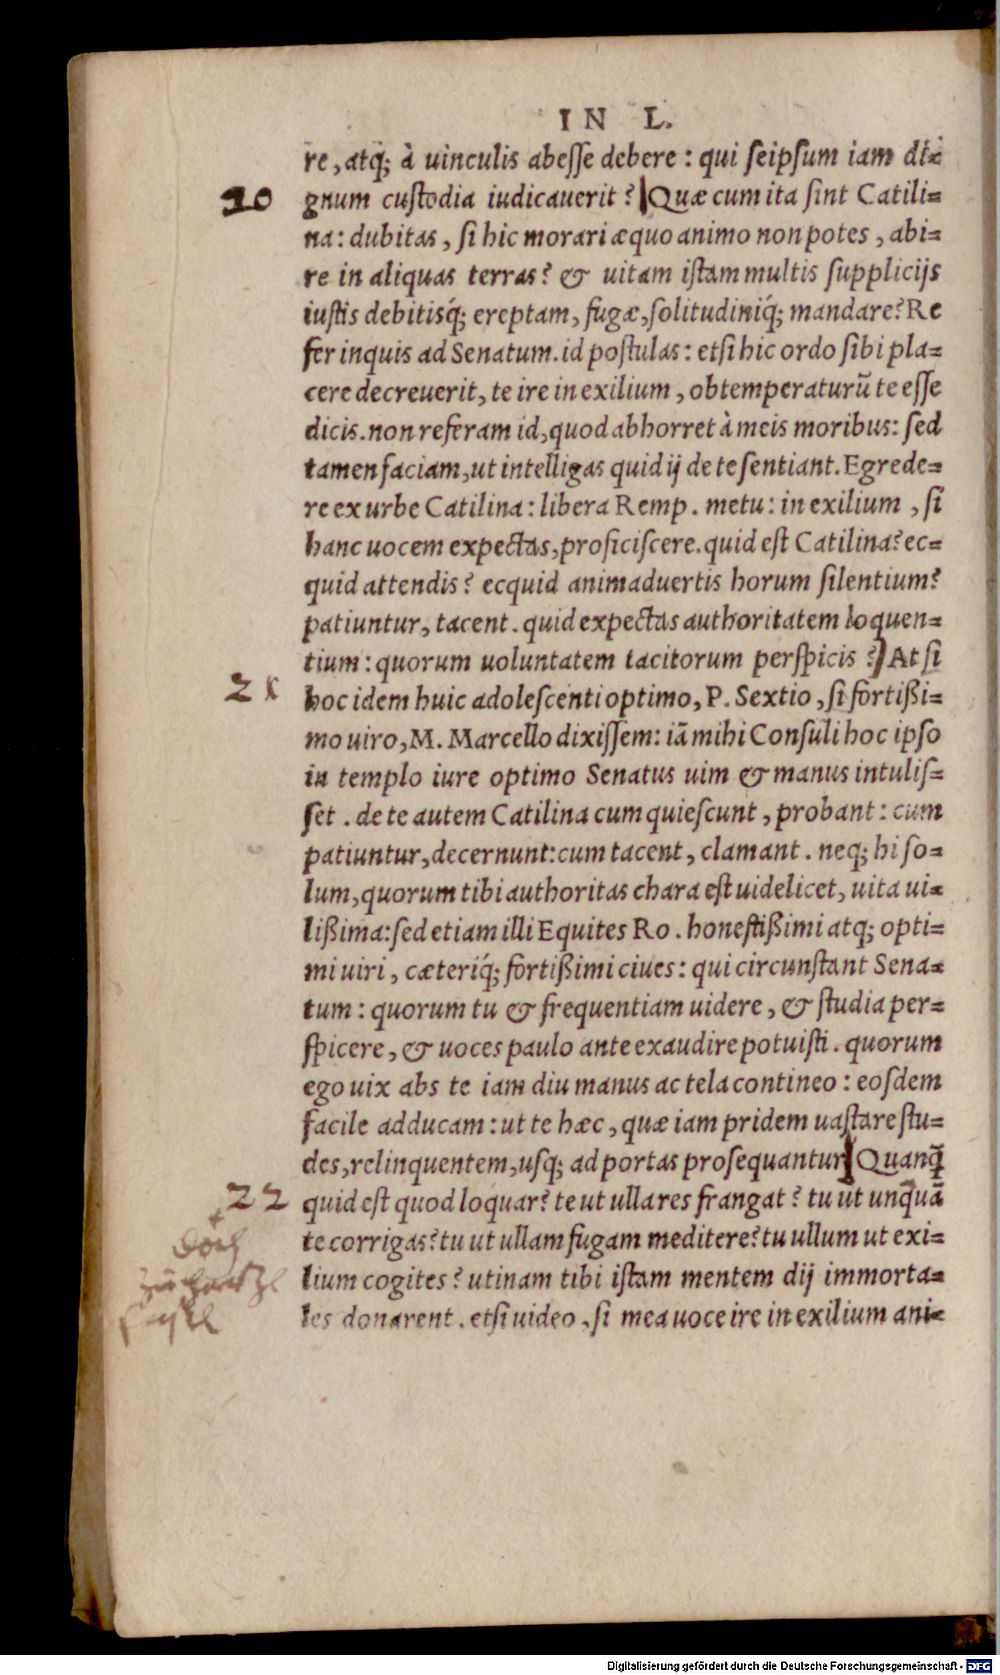 IN L.
re, atq; à uinculis abesse debere : qui seipsum iam di=
20 gnum custodia iudicauerit ? Quæ cum ita sint Catili=
na : dubitas, si hic morari æquo animo non potes, abi=
re in aliquas terras? & uitam istam multis supplicijs
iustis debitisq́; ereptam, fugæ, solitudiniq́; mandare? Re
fer inquis ad Senatum. id postulas : etsi hic ordo sibi pla=
cere decreuerit, te ire in exilium, obtemperaturũ te esse
dicis. non referam id, quod abhorret à meis moribus: sed
tamen faciam, ut intelligas quid ij de te sentiant. Egrede=
re ex urbe Catilina : libera Remp. metu: in exilium, si
hanc uocem expectas, proficiscere. quid est Catilina? ec=
quid attendis? ecquid animaduertis horum silentium?
patiuntur, tacent. quid expectas authoritatem loquen=
tium: quorum uoluntatem tacitorum perspicis ? At si
21 hoc idem huic adolescenti optimo, P. Sextio, si fortißi=
mo uiro, M. Marcello dixissem: iã mihi Consuli hoc ipso
in templo iure optimo Senatus uim & manus intulis=
set. de te autem Catilina cum quiescunt, probant: cum
patiuntur, decernunt: cum tacent, clamant. neq; hi so=
lum, quorum tibi authoritas chara est uidelicet, uita ui=
lißima: sed etiam illi Equites Ro. honestißimi atq; opti=
mi uiri, cæteriq́; fortißimi ciues: qui circunstant Sena=
tum : quorum tu & frequentiam uidere, & studia per=
spicere, & uoces paulo ante exaudire potuisti. quorum
ego uix abs te iam diu manus ac tela contineo : eosdem
facile adducam: ut te hæc, quæ iam pridem uastare stu=
des, relinquentem, usq; ad portas prosequantur. Quanq̃
22 quid est quod loquar? te ut ulla res frangat? tu ut unquã
te corrigas? tu ut ullam fugam meditere? tu ullum ut exi=
lium cogites? utinam tibi istam mentem dij immorta=
les donarent. etsi uideo, si mea uoce ire in exilium ani=
doch
Digitalisierung gefördert durch die Deutsche Forschungsgemeinschaft - DFG